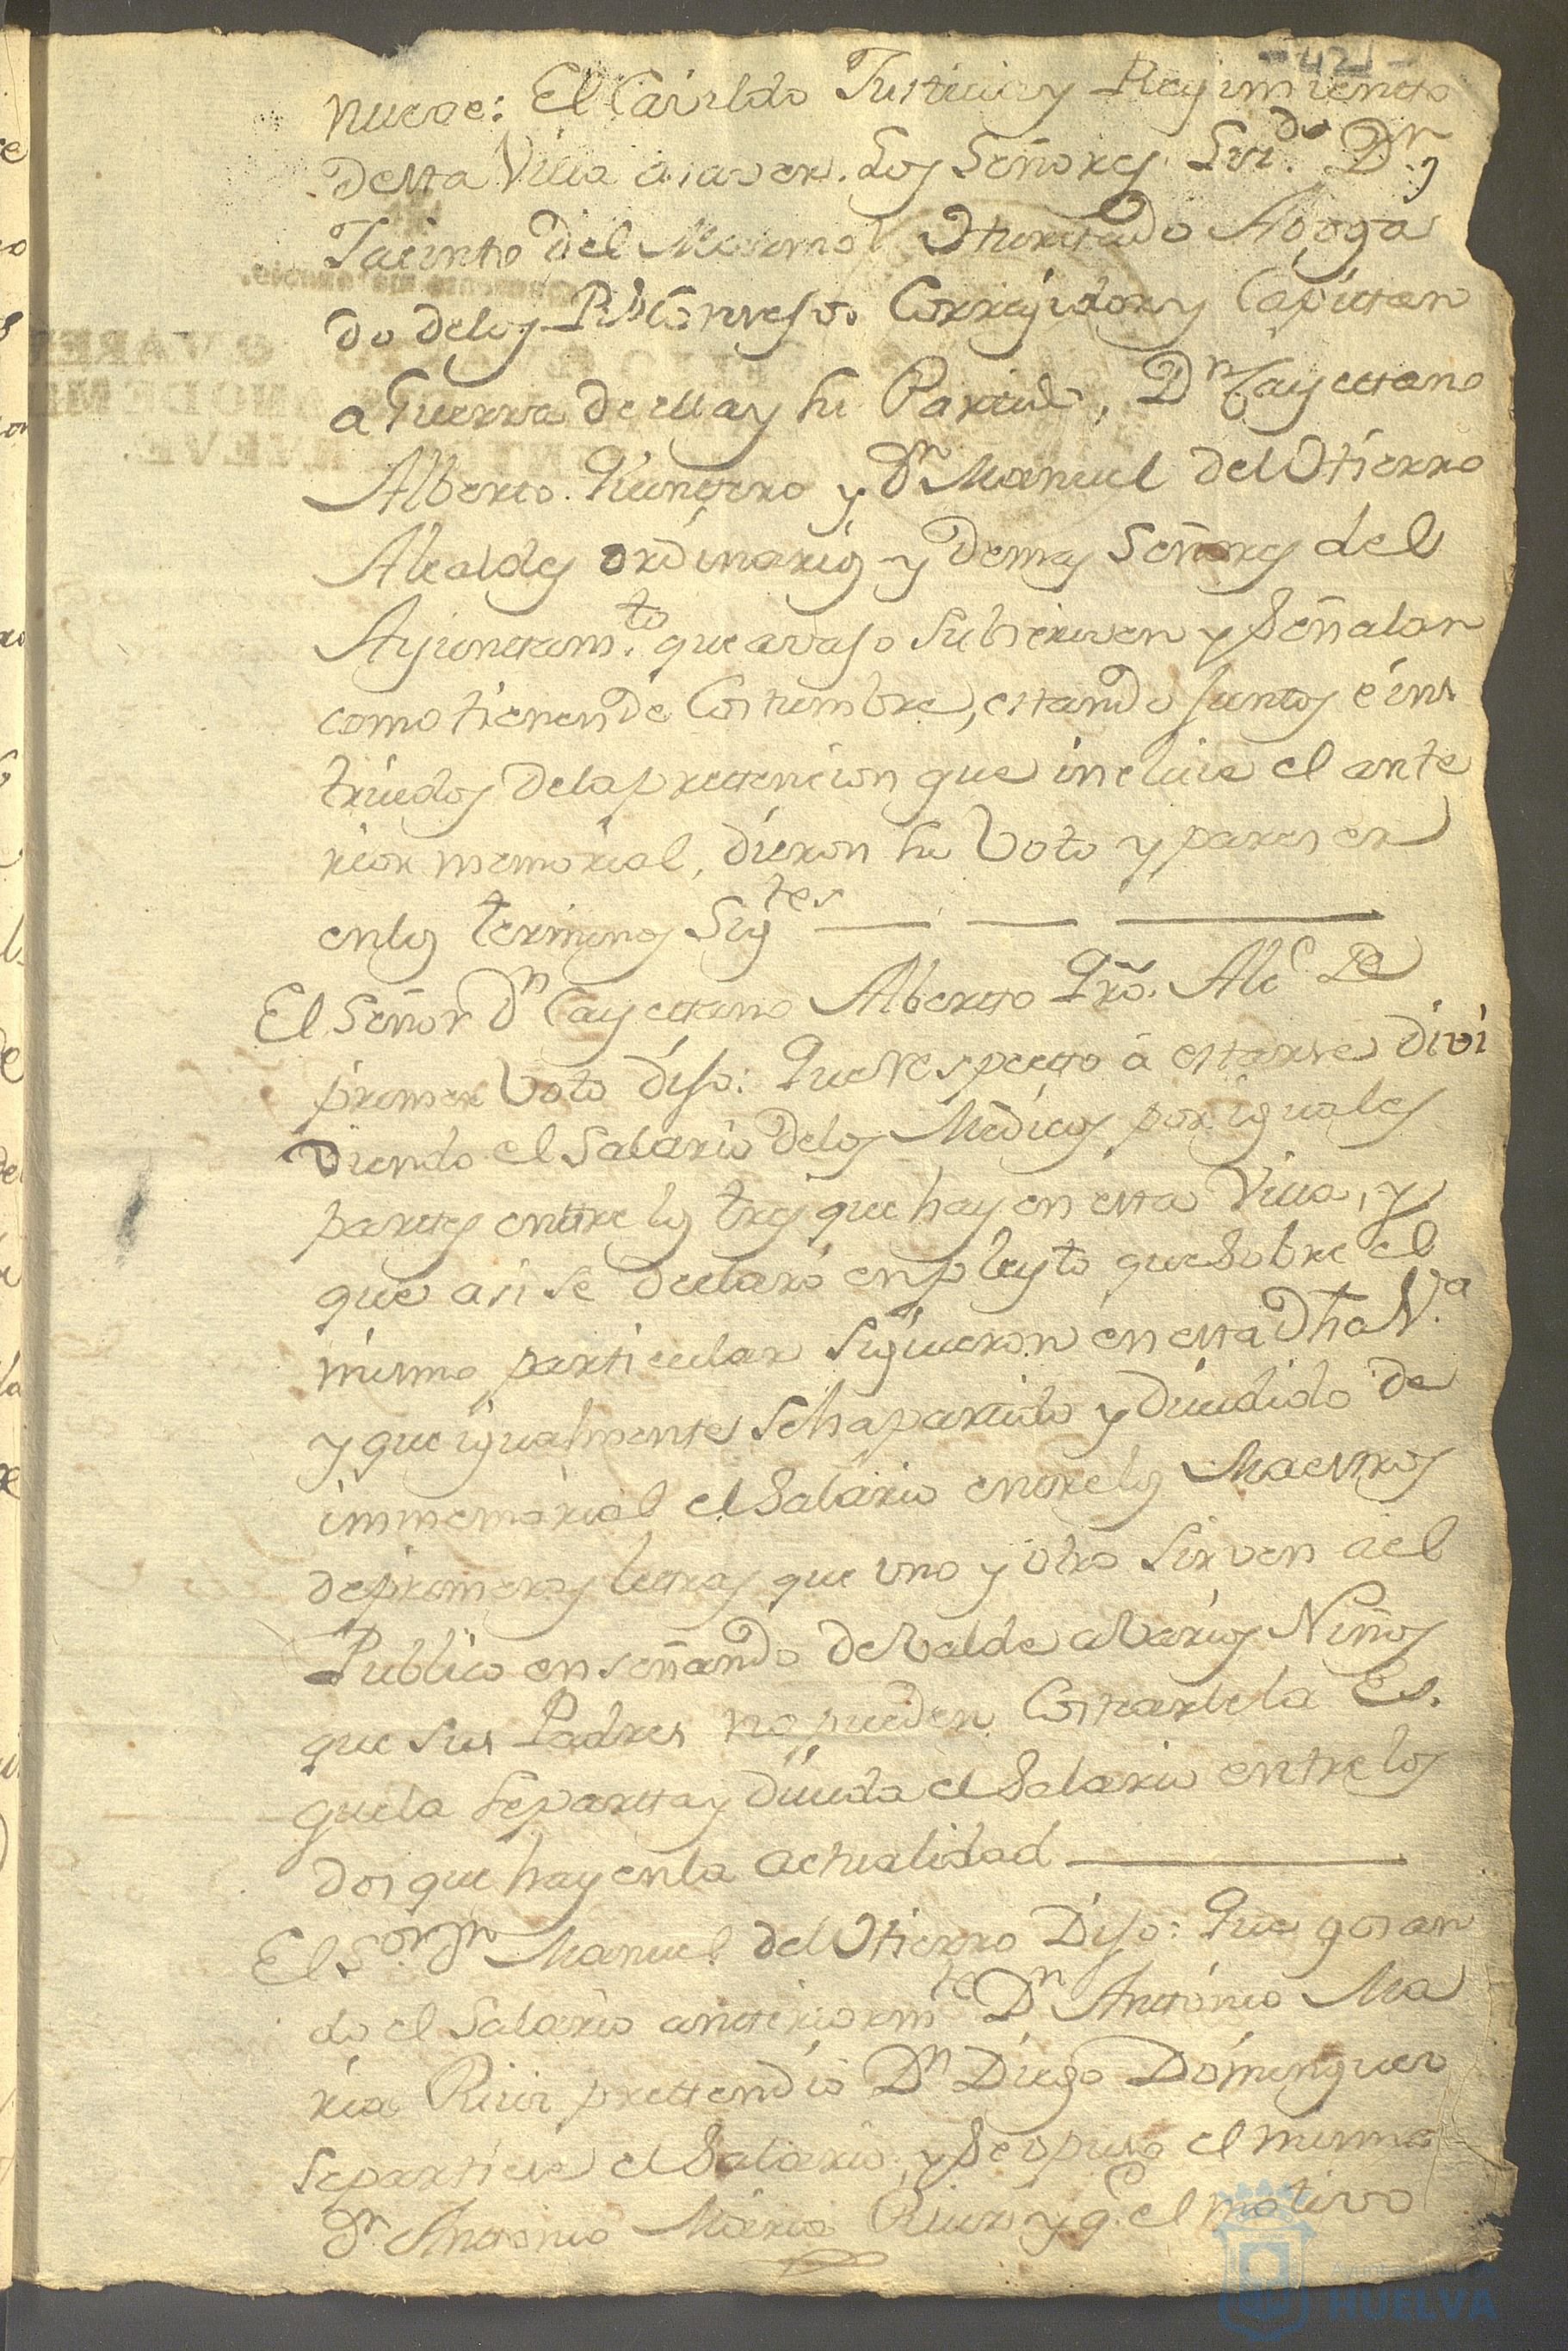 421
nueve: El Cavildo Justicia y Regimiento
desta Villa a saver. Los Señores Lizdo. Dn.
Jacinto del Moxmol Hurtado Aboga
do delos Rs. Consejos. Correjidor y Capittan
a Guerra de ella y su Partido, Dn. Cayettano
Alberto Quintero y Dn. Manuel del Hierro
Alcaldes ordinarios y demas Señores del
Ayunttamto. que avajo subscriven y señalan
como tienen de Costumbre, estando juntos e ins
truidos dela prettencion que incluie el ante
rior memorial, dieron su Voto y pareser
enlos terminos Sigtes
El Señor Dn. Cayettano Albertto Qro. Alce. de
primer Voto dijo: Que respectto á estarse divi
diendo el salario delos Medicos por iguales
parttes enttre los tres que hay en esta Villa, y
que asi se declaró en pleyto que sobre el
mismo particular siguieron en esta Dha Va.
y que igualmente se ha partido y dividido de
immemorial el salario entre los Maestros
de primeras lettras que uno y otro sirven a el
Publico enseñando de valde a varios Niños
que sus Padres no pueden Costearle la Es.
quela se partta y divida el salario entre los
dos que hay en la actualidad
El Sor. Dn. Manuel del Hierro Dijo: Que gosan
do el salario antteriormte. Dn. Anttonio Ma
ria Ruis prettendió Dn. Diego Dominguez
se partiese el salario, y se opuso el mismo
Dn. Anttonio Maria Ruis y qe. el motivo
HUELVA